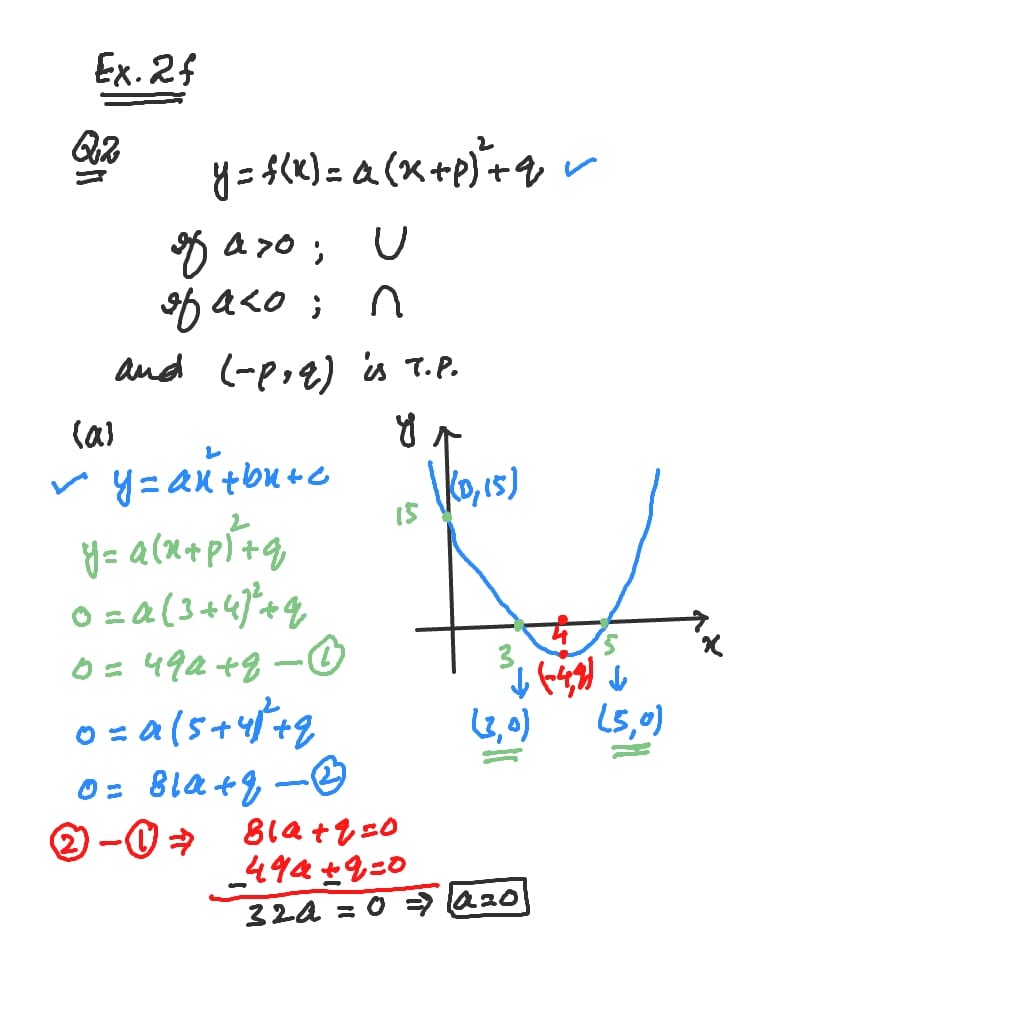 Ex. 2f
Q2
y = f(x) = a(x+p)² + q ✓
If a>0 ; ∪
If a<0 ; ∩
and (-p, q) is T.P.
(a)
✓ y = ax² + bx + c
y = a(x+p)² + q
0 = a(3+4)² + q
0 = 49a + q — ①
0 = a(5+4)² + q
0 = 81a + q — ②
② - ① ⇒ 81a + q = 0
- 49a + q = 0
32a = 0 ⇒ a = 0
y
(0,15)
15
4
3
5
x
(-4,q)
(3,0)
(5,0)